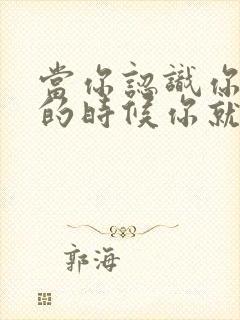 當你認識你
的時候你就
郭海